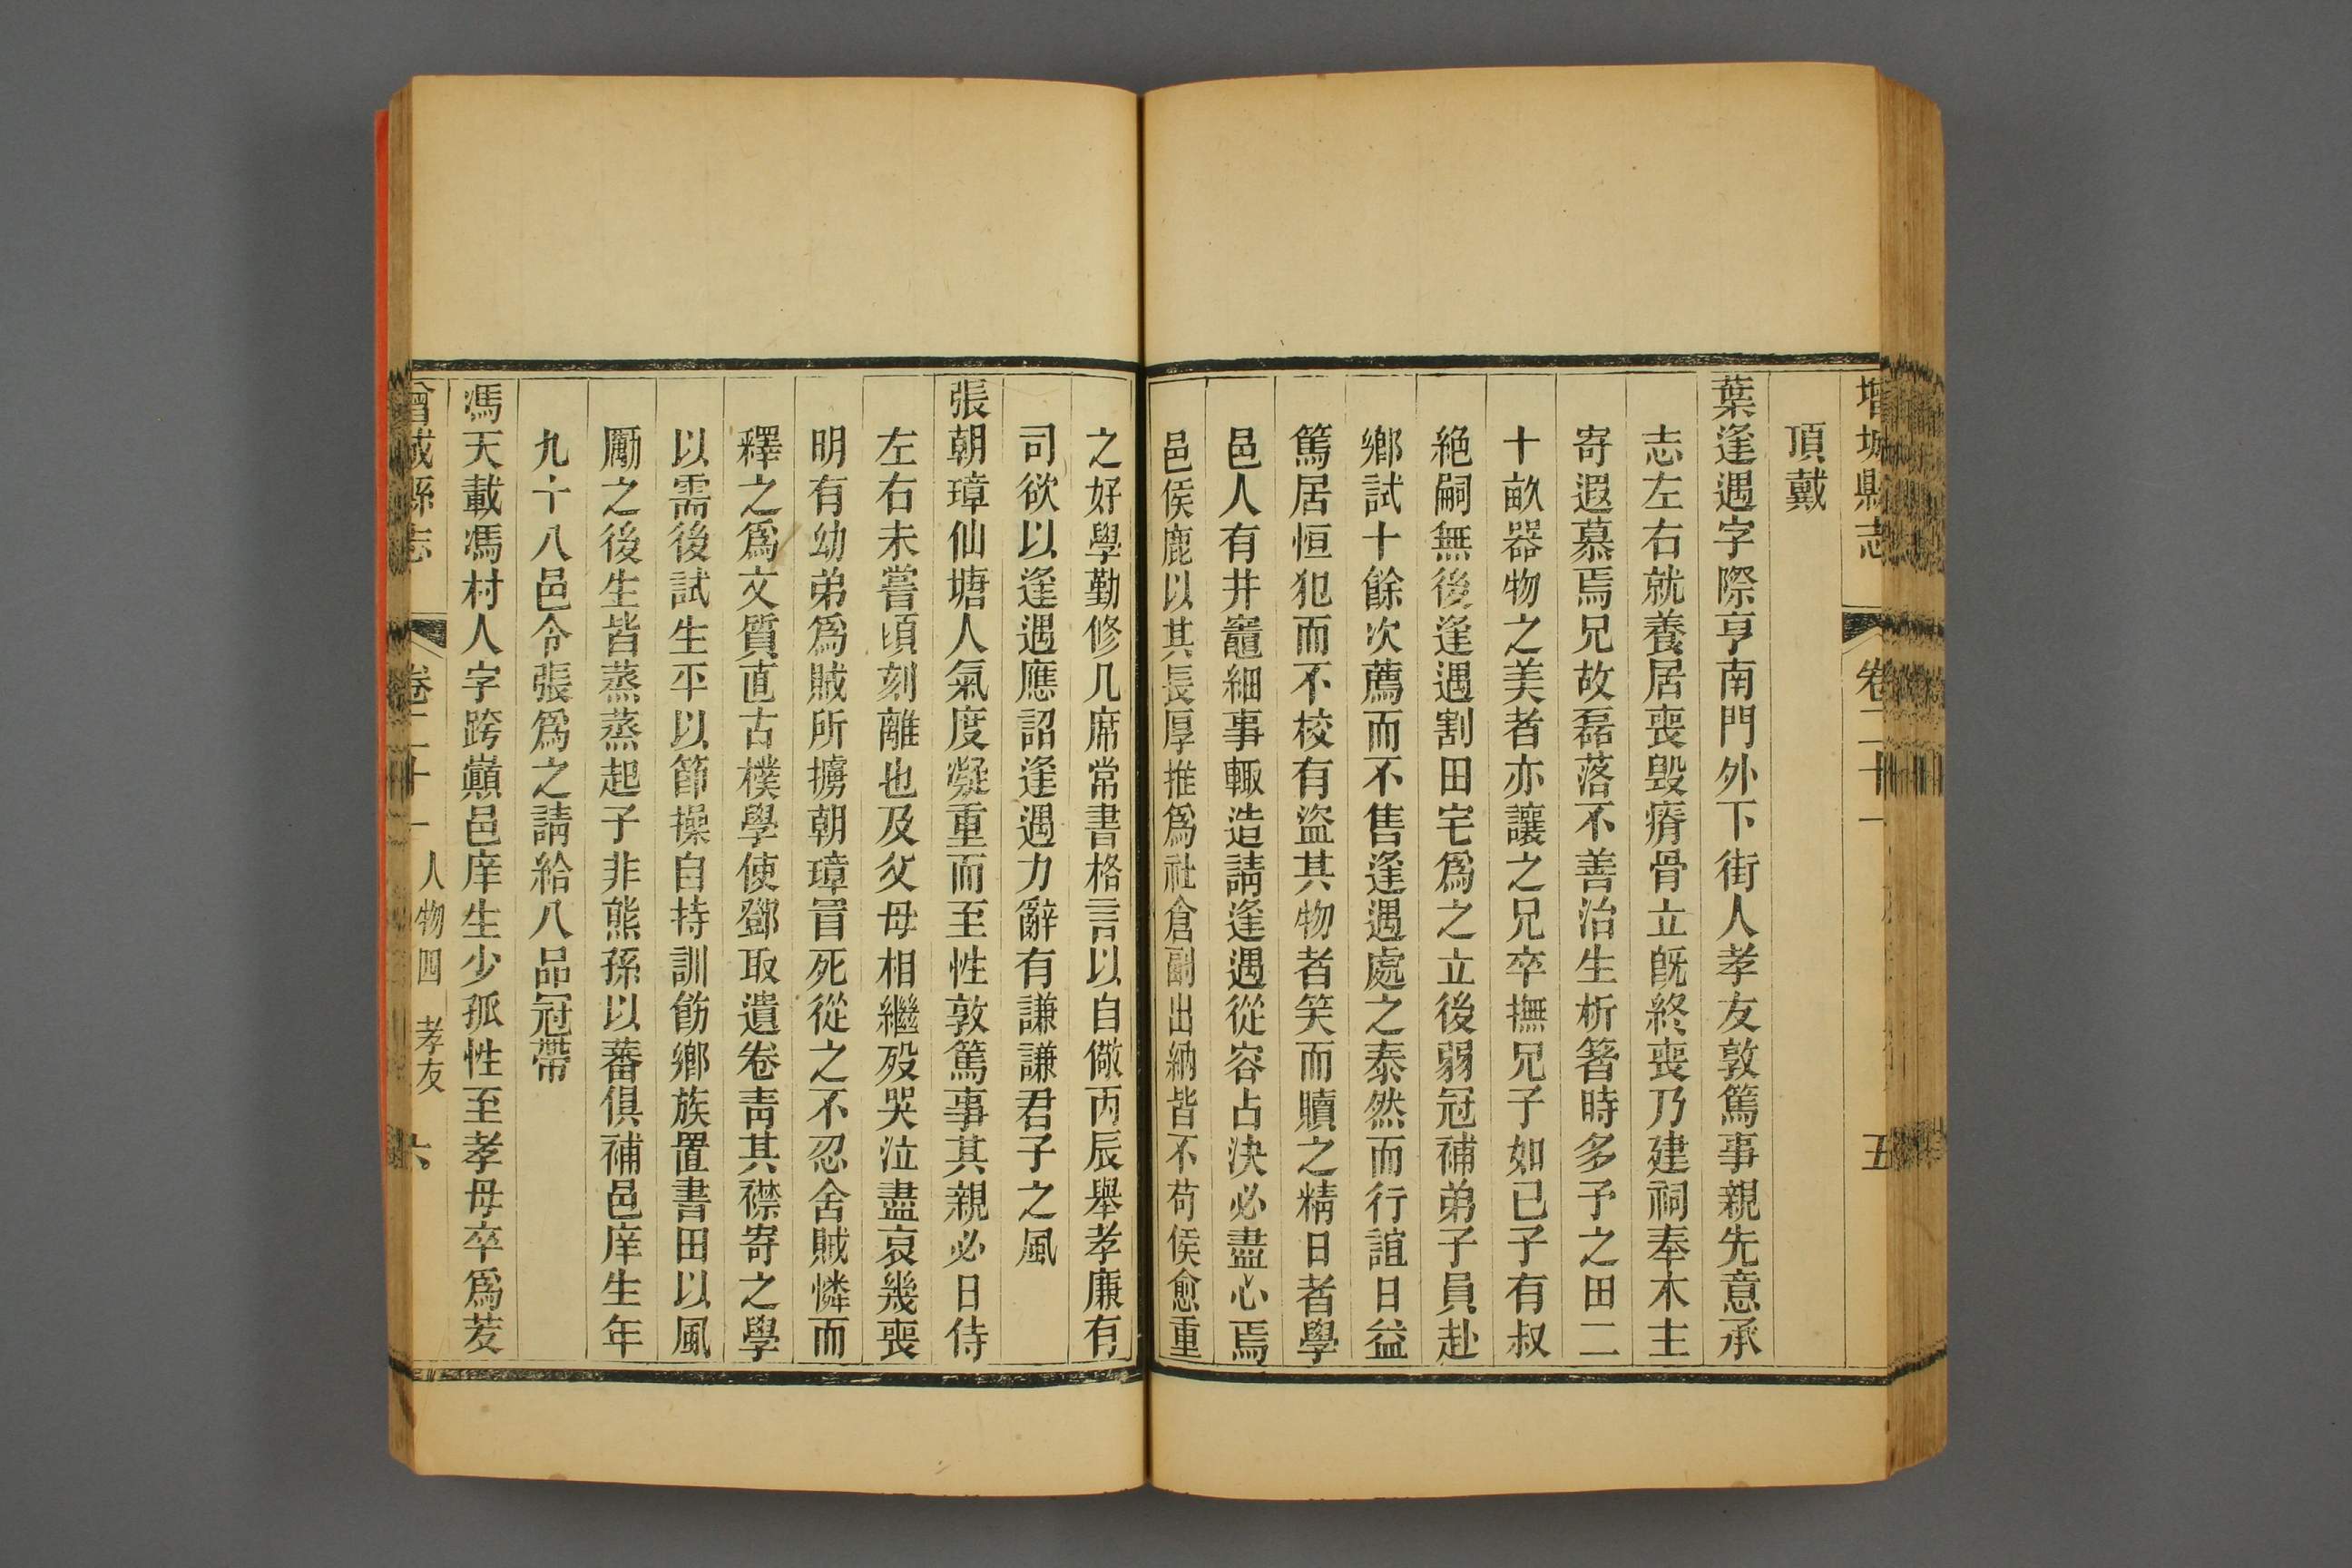 增城縣志 卷二十一 五
頂戴
葉逢遇字際亨南門外下街人孝友敦篤事親先意承
志左右就養居喪毀瘠骨立旣終喪乃建祠奉木主
寄遐慕焉兄故磊落不善治生析箸時多予之田二
十畝器物之美者亦讓之兄卒撫兄子如已子有叔
絶嗣無後逢遇割田宅爲之立後弱冠補弟子員赴
鄉試十餘次薦而不售逢遇處之泰然而行誼日益
篤居恒犯而不校有盜其物者笑而贖之精日者學
邑人有井竈細事輒造請逢遇從容占決必盡心焉
邑侯鹿以其長厚推爲社倉副出納皆不苟侯愈重
之好學勤修几席常書格言以自儆丙辰舉孝廉有
司欲以逢遇應詔逢遇力辭有謙謙君子之風
張朝璋仙塘人氣度凝重而至性敦篤事其親必日侍
左右未嘗頃刻離也及父母相繼歿哭泣盡哀幾喪
明有幼弟爲賊所擄朝璋冒死從之不忍舍賊憐而
釋之爲文質直古樸學使鄧取遺卷靑其襟寄之學
以需後試生平以節操自持訓飭鄉族置書田以風
勵之後生皆蒸蒸起子非熊孫以蕃俱補邑庠生年
九十八邑令張爲之請給八品冠帶
馮天載馮村人字跨巔邑庠生少孤性至孝母卒爲茇
曾城縣志 卷二十一 人物四 孝友 六